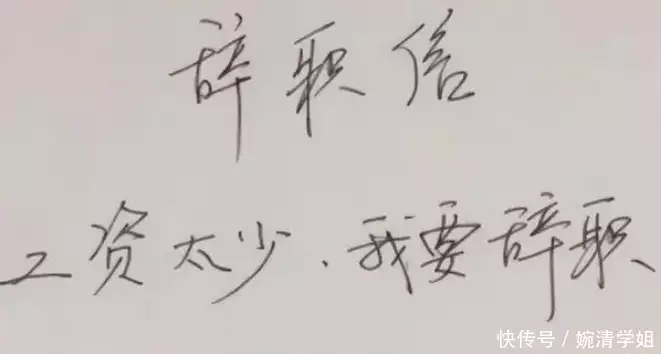 辞职信
工资太少，我要辞职
快传号／婉清学姐